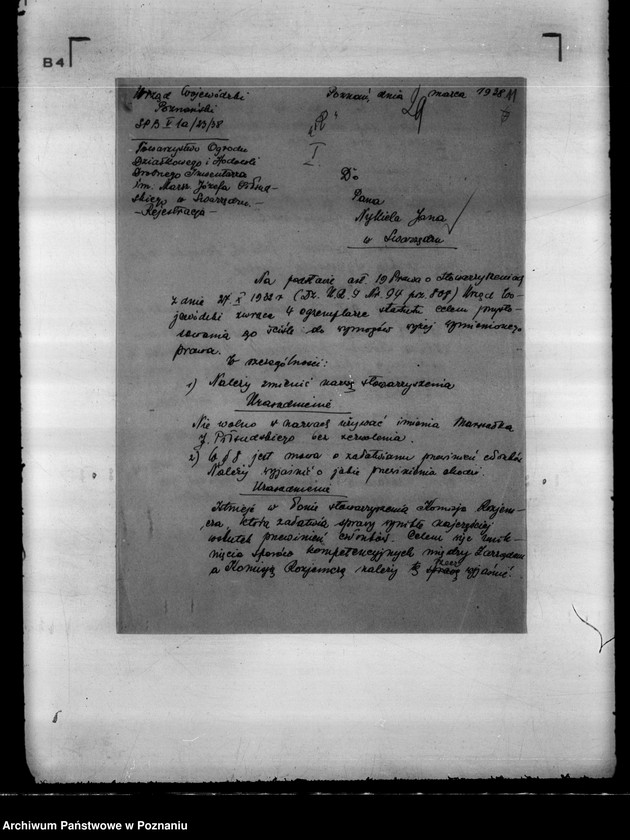 B4
Urząd Wojewódzki
Poznański
SPB V 1a/23/38
Poznań, dnia 29 marca 1938
"R"
I.
Towarzystwo Ogrodu
Działkowego i Hodowli
Drobnego Inwentarza
im. Marsz. Józefa Piłsud-
skiego w Swarzędzu.-
- Rejestracja -
Do
Pana
Nyklela Jana
w Swarzędzu
Na podstawie art. 19 Prawa o stowarzyszeniach
z dnia 27 X 1932 r (Dz. U.R.P. Nr. 94 poz. 808) Urząd Wo-
jewódzki zwraca 4 egzemplarze statutu celem przysto-
sowania go ściśle do wymogów wyżej wymienionego
prawa.
W szczególności:
1) Należy zmienić nazwę stowarzyszenia
Uzasadnienie
Nie wolno w nazwach używać imienia Marszałka
J. Piłsudskiego bez zezwolenia.
2) W § 8 jest mowa o załatwianiu przewinień członków.
Należy wyjaśnić o jakie przewinienia chodzi.
Uzasadnienie
Istnieje w łonie stowarzyszenia Komisja Rozjem-
cza, która załatwia sprawy wynikłe
wskutek przewinień członków. Celem unik-
nięcia sporów kompetencyjnych między Zarządem
a Komisją Rozjemczą należy tę rzecz wyjaśnić.
Archiwum Państwowe w Poznaniu